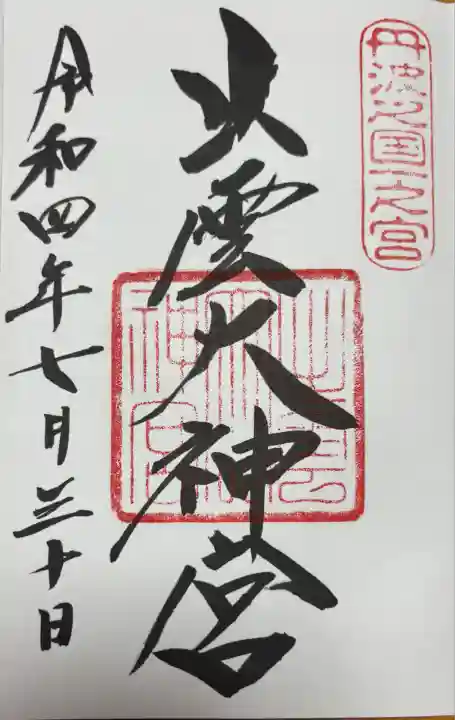 丹波國一之宮
出雲大神宮
令和四年七月三十日